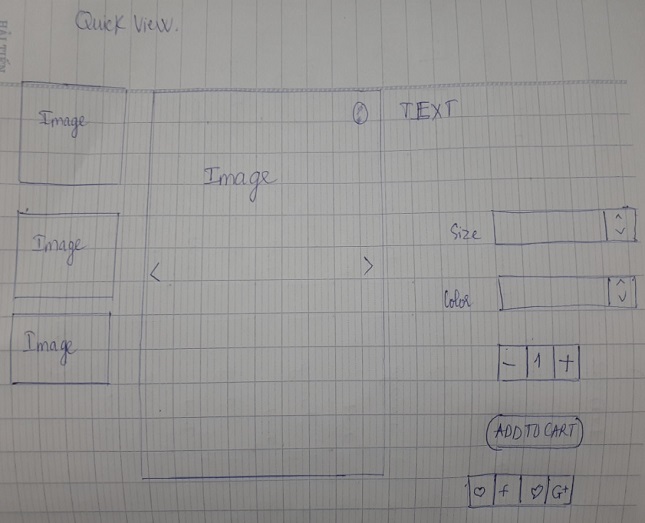 Quick View.
HẢI TIẾN
Image
Image
Image
Image
< >
TEXT
Size
Color
- 1 +
ADD TO CART
f G+